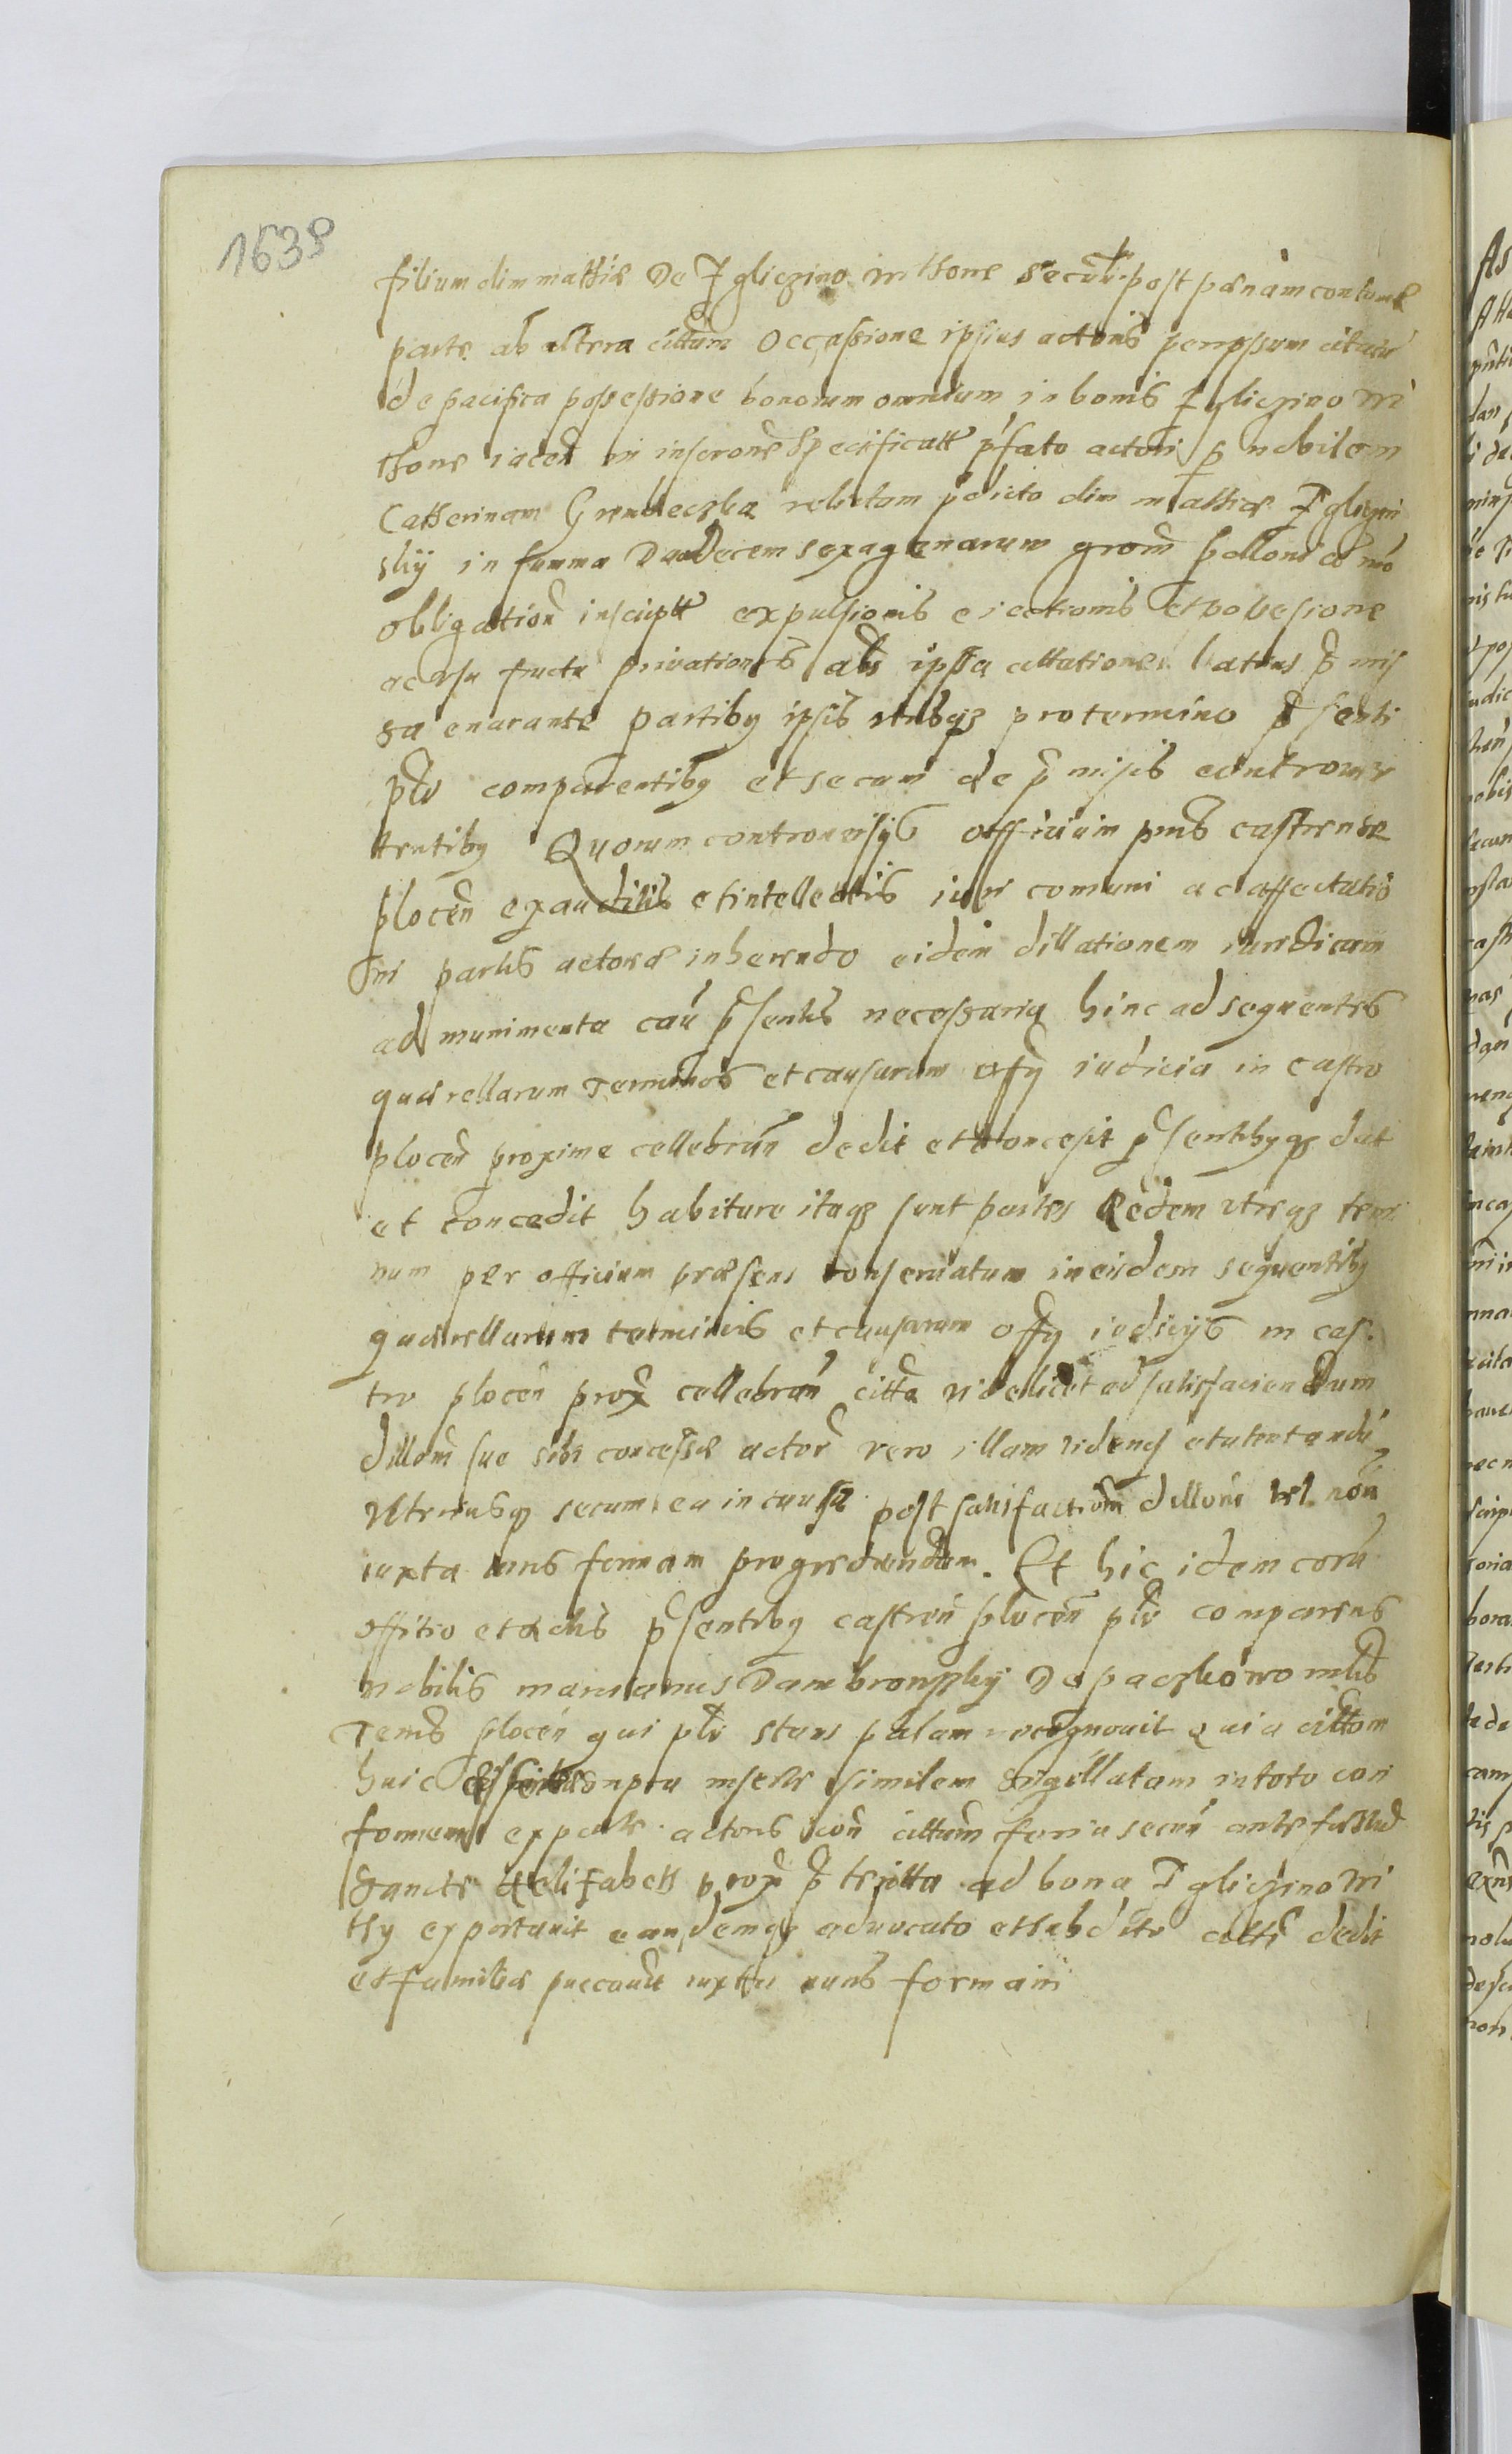 1638
filium olim mathiæ De Igliczino withone secul post pænam contum
parte ab altera cittum Occassione ipsius actoris per ipsum citatu
de pacifica possessione bonorum omnium in bonis Igliczino Wi
thone iacen in inscrone specificatt pfato actori p nobilem
Catherinam relictam pdicto olim mathiæ Igliczin
skij in summa Duodecem sexagenarum grom polloni co mo
obligation inscriptt expulsionis eiectionis et possesione
ac usu fructu privationis ipsa cittatione latius p mis
sa enarante partiby ipsis utrisqz pro termino psenti
plr comparentiby et secum de p misis controuer
tentiby Quorum controuersijs officium pns castrense
plocen exauditis et intellectis iuri comuni ac affectatio
ni partis actoræ inherendo eidem dillationem iuridicam
ad munimenta cau psentis necessaria hinc ad sequentes
quærellarum Terminos et causarum offy iudicia in castro
plocen proxime cellebran dedit et concesit psentibyqz dat
et concedit habitura itaqz sunt partes eedem utreqz term
num per officium præsens conseruatum in eisdem sequentiby
quærellarum terminis et causarum offy iudicijs in cas
tro plocen prox cellebran citta videlicet ad satisfaciendum
dillom sue sibi concessæ actor vero illam videnς et attentandu
Utriusqz secum ea in causa post satisfactiom dilloni vel non
iuxta iuris formam progrediendum. Et hic idem cora
offitio et actis psentiby castren plocen plr comparens
nobilis marcianus Dambrowsky De paczkowo mlis
Terns plocen qui plr stans palam recognouit quia cittom
huic inserte similem sigillatam in toto con
formem ex parte actoris cittum feria secun ante festud
Sancte Helisabeth prox p teritta ad bona Igliczino Wi
thy exportauit eandemqz aduocato et subdito dedit
et familiæ precauit iuxta iuris formam